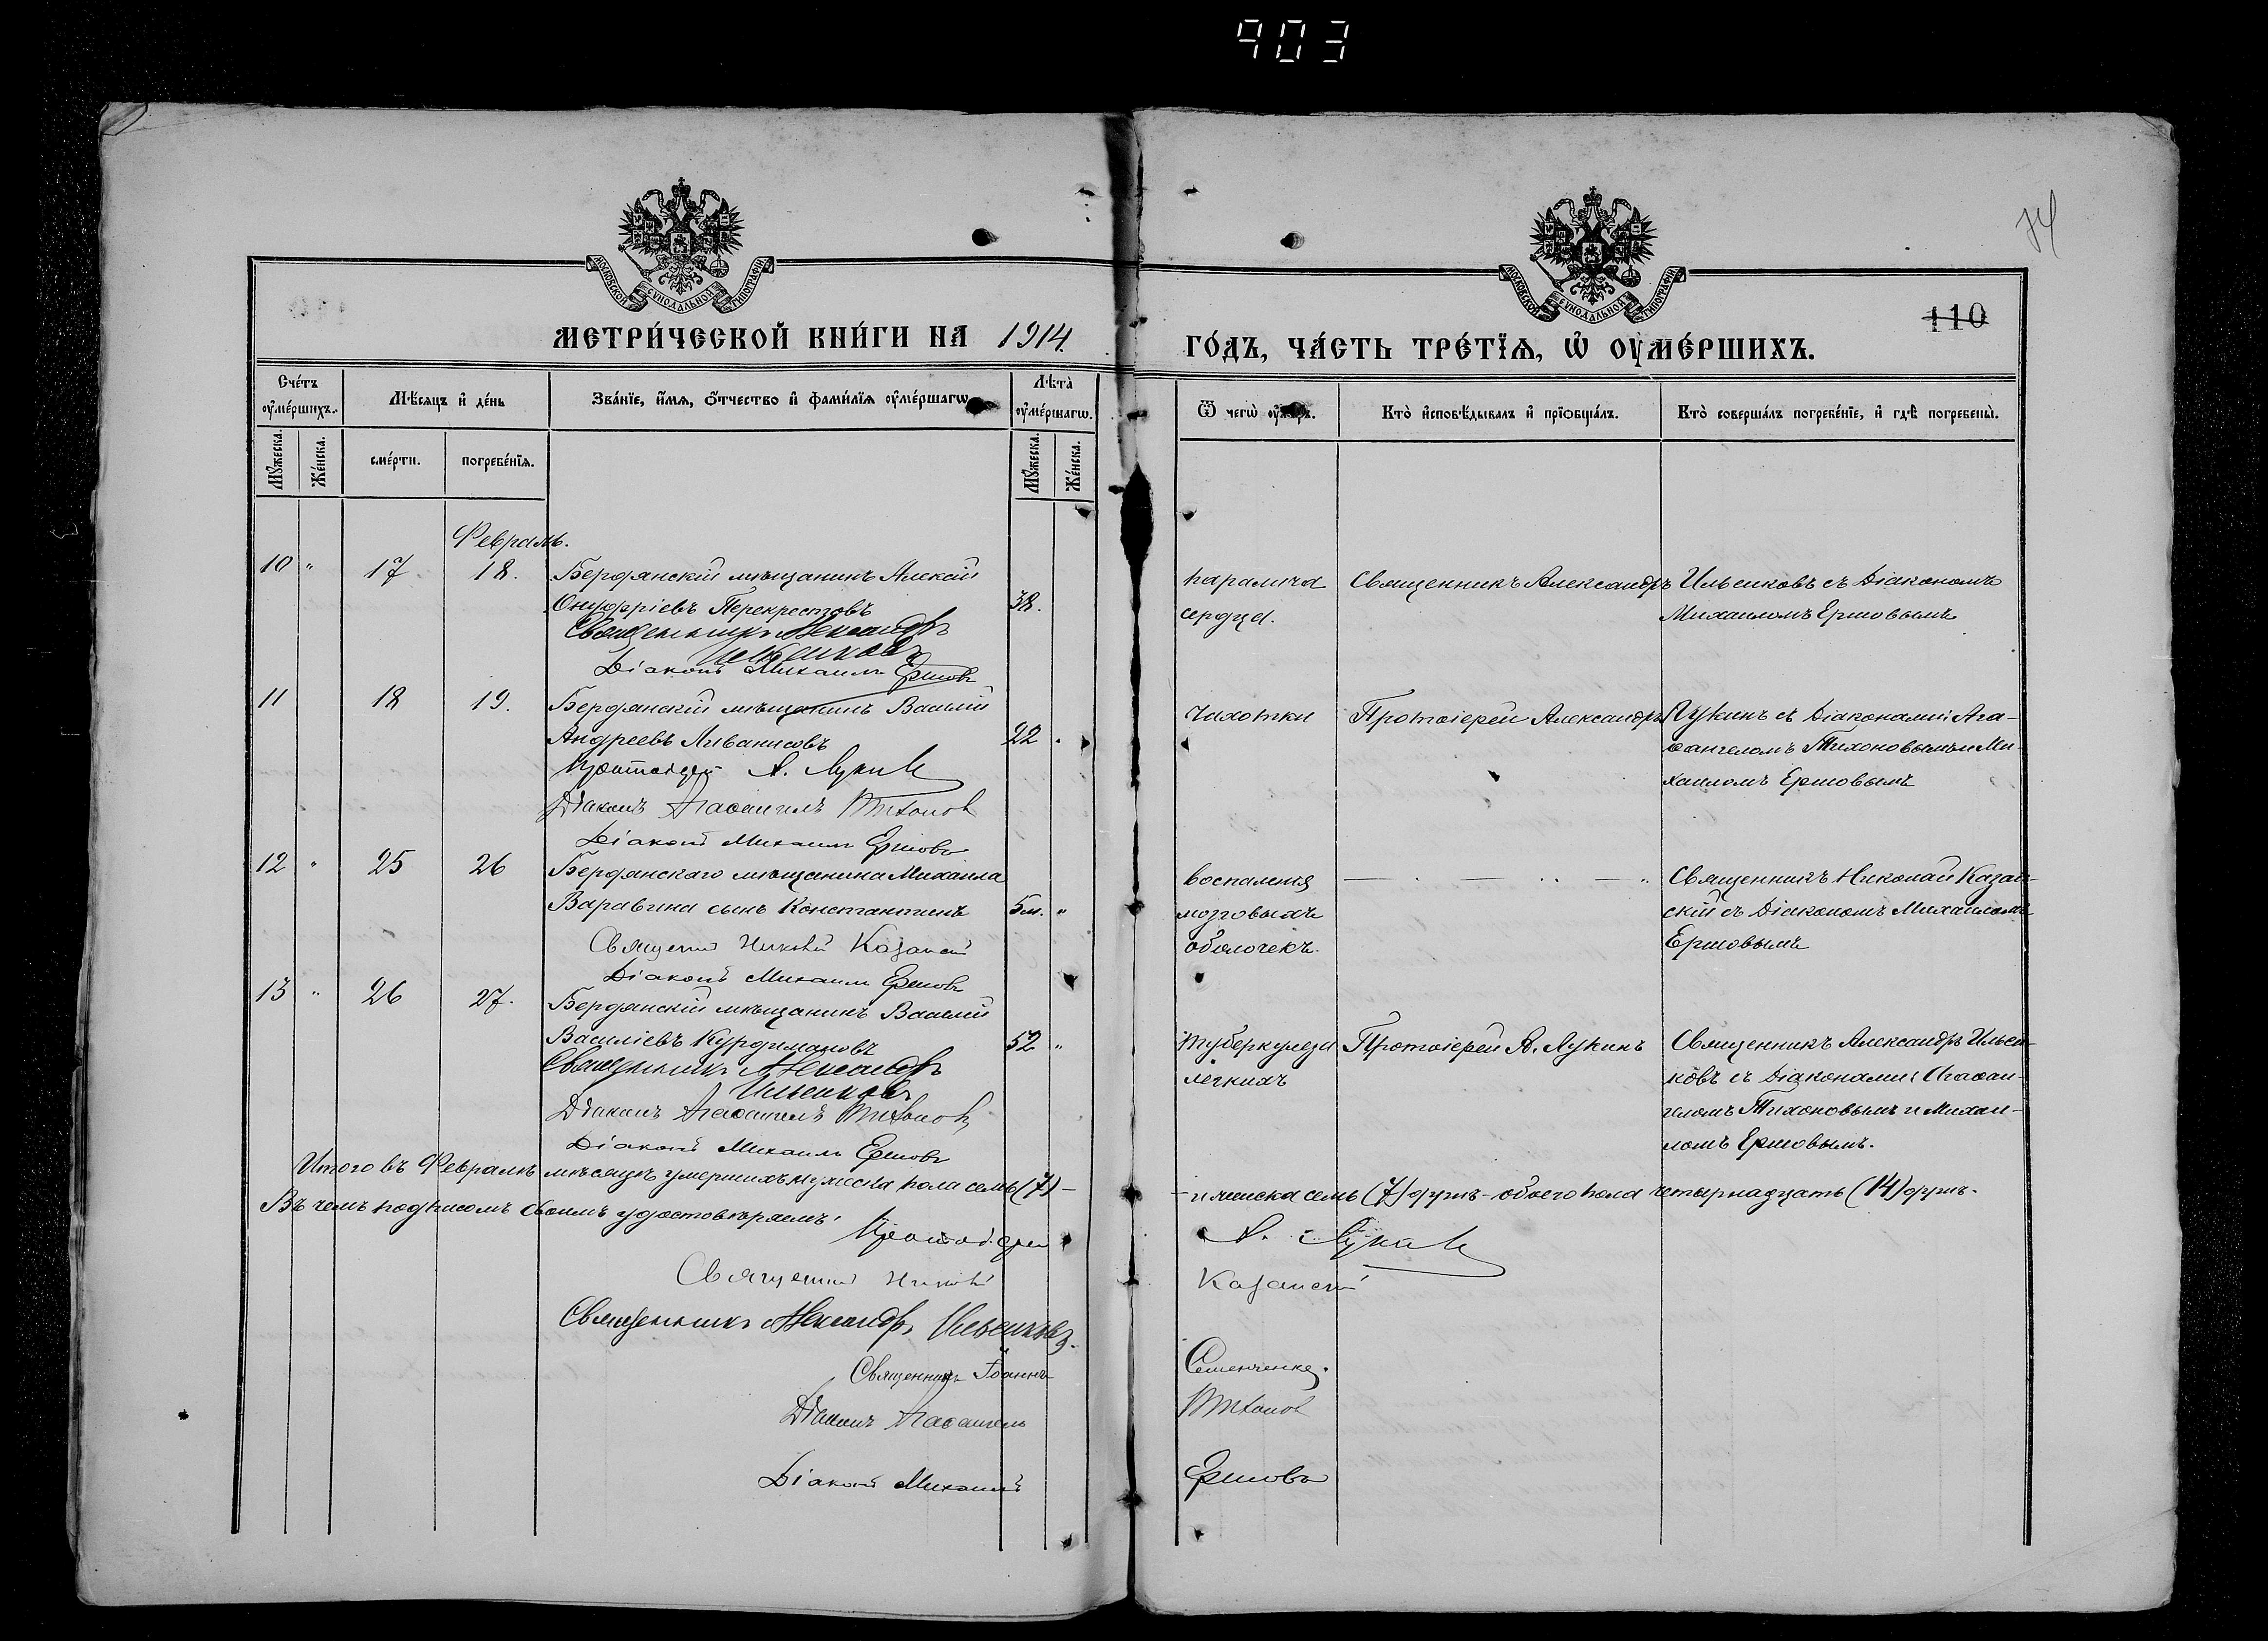 903
74
МОСКОВСКОЙ СУНОДАЛЬНОЙ ТИПОГРАФІИ
МОСКОВСКОЙ СУНОДАЛЬНОЙ ТИПОГРАФІИ
110
МЕТРИ́ЧЕСКОЙ КНИ́ГИ НА 1914. ГО́ДЪ, ЧА́СТЬ ТРЕ́ТІѦ, Ѡ ОУМЕ́РШИХЪ.
Сче́тъ оуме́ршихъ.
Мѣ́сяцъ и де́нь
Зва́нїе, и́мя, о́тчество и фами́лїя оуме́ршагѡ
Лѣта̀ оуме́ршагѡ.
Ѿ чегѡ̀ оу́меръ.
Кто̀ исповѣ́дывалъ и прїѡбща́лъ.
Кто̀ соверша́лъ погребе́нїе, и гдѣ̀ погребены̀.
Му́жеска.
Же́нска.
сме́рти.
погребе́нїя.
Му́жеска.
Же́нска.
Февраль.
10 " 17 18. Бердянскій мѣщанинъ Алексій
Онуфріевъ Перекрестовъ 38.
Священникъ Александръ
Ильенковъ
Діаконъ Михаилъ Ершовъ
паралича
сердца.
Священникъ Александръ Ильенковъ съ Діакономъ
Михаиломъ Ершовымъ
11 18 19. Бердянскій мѣщанинъ Василій
Андреевъ Ливанисовъ 22 "
Протоіерей А. Лукинъ
Діаконъ Агаѳангелъ Тихонов
Діаконъ Михаилъ Ершовъ
чахотки
Протоіерей Александръ Лукинъ съ Діаконами: Ага-
ѳангеломъ Тихоновымъ и Ми-
хаиломъ Ершовымъ
12 " 25 26 Бердянскаго мѣщанина Михаила
Варавина сынъ Константинъ 5м. "
Священник Николай Казанскій
Діаконъ Михаилъ Ершовъ
воспаленія
мозговыхъ
оболочекъ.
Священникъ Николай Казан-
скій съ Діакономъ Михаиломъ
Ершовымъ
13 " 26 27. Бердянскій мѣщанинъ Василій
Василіевъ Курдимановъ 52 "
Священникъ Александръ
Ильенковъ
Діаконъ Агаѳангелъ Тихонов
Діаконъ Михаилъ Ершовъ
туберкулеза
легкихъ
Протоіерей А. Лукинъ
Священникъ Александръ Ильен-
ковъ съ Діаконами: Агаѳан-
геломъ Тихоновымъ и Михаи-
ломъ Ершовымъ.
Итого въ Февралѣ мѣсяцѣ умершихъ мужеска пола семь (7) - и женска семь (7) душъ - обоего пола четырнадцать (14) душъ.
Въ чемъ подписомъ своимъ удостовѣряемъ:
Протоіерей А. Лукинъ
Священник Николай Казанскій
Священникъ Александръ Ильенковъ.
Священникъ Іоаннъ Семенченко.
Діаконъ Агаѳангелъ Тихонов
Діаконъ Михаилъ Ершовъ